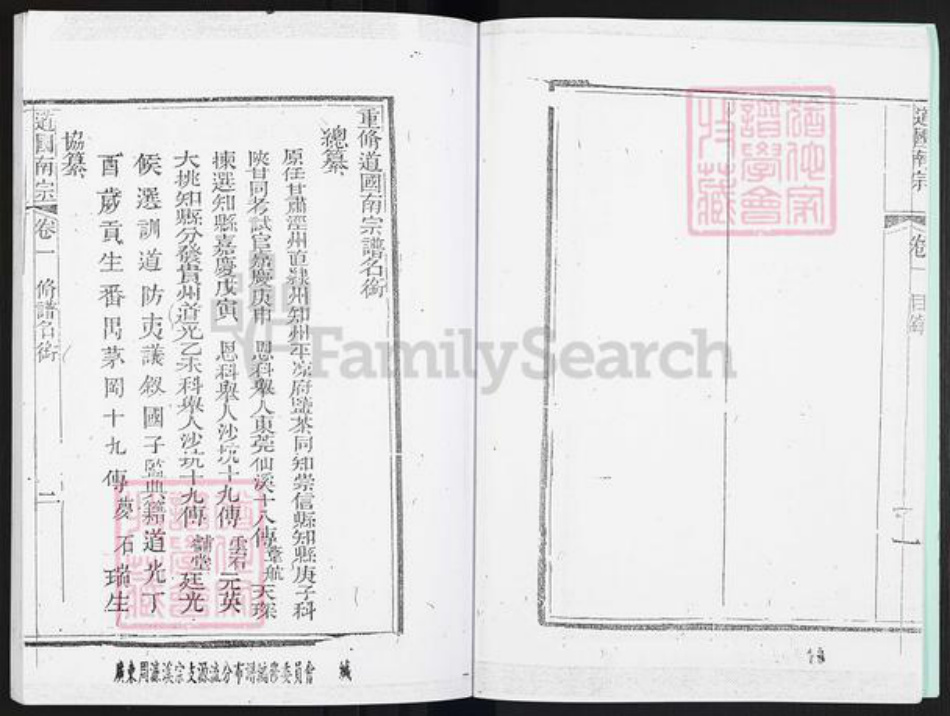 道國南宗 卷一 目錄
重脩道國南宗譜名銜
總纂
原任甘肅涇州直隸州知州平凉府鹽茶同知崇信縣知縣庚子科
陝甘同考試官嘉慶庚申 恩科舉人東莞仙溪十八傳 天琛
揀選知縣嘉慶戊寅 恩科舉人沙坑十九傳 雲石 元英
大挑知縣分發貴州道光乙未科舉人沙坑十九傳 黼堂 廷光
候選訓道防夷議叙國子監典籍道光丁
酉歲貢生番禺茅岡十九傳 夢石 瑞生
協纂
道國南宗 卷一 脩譜名銜 二
廣東周濂溪宗支源流分布譜編修委員會
譜學會
收藏
FamilySearch